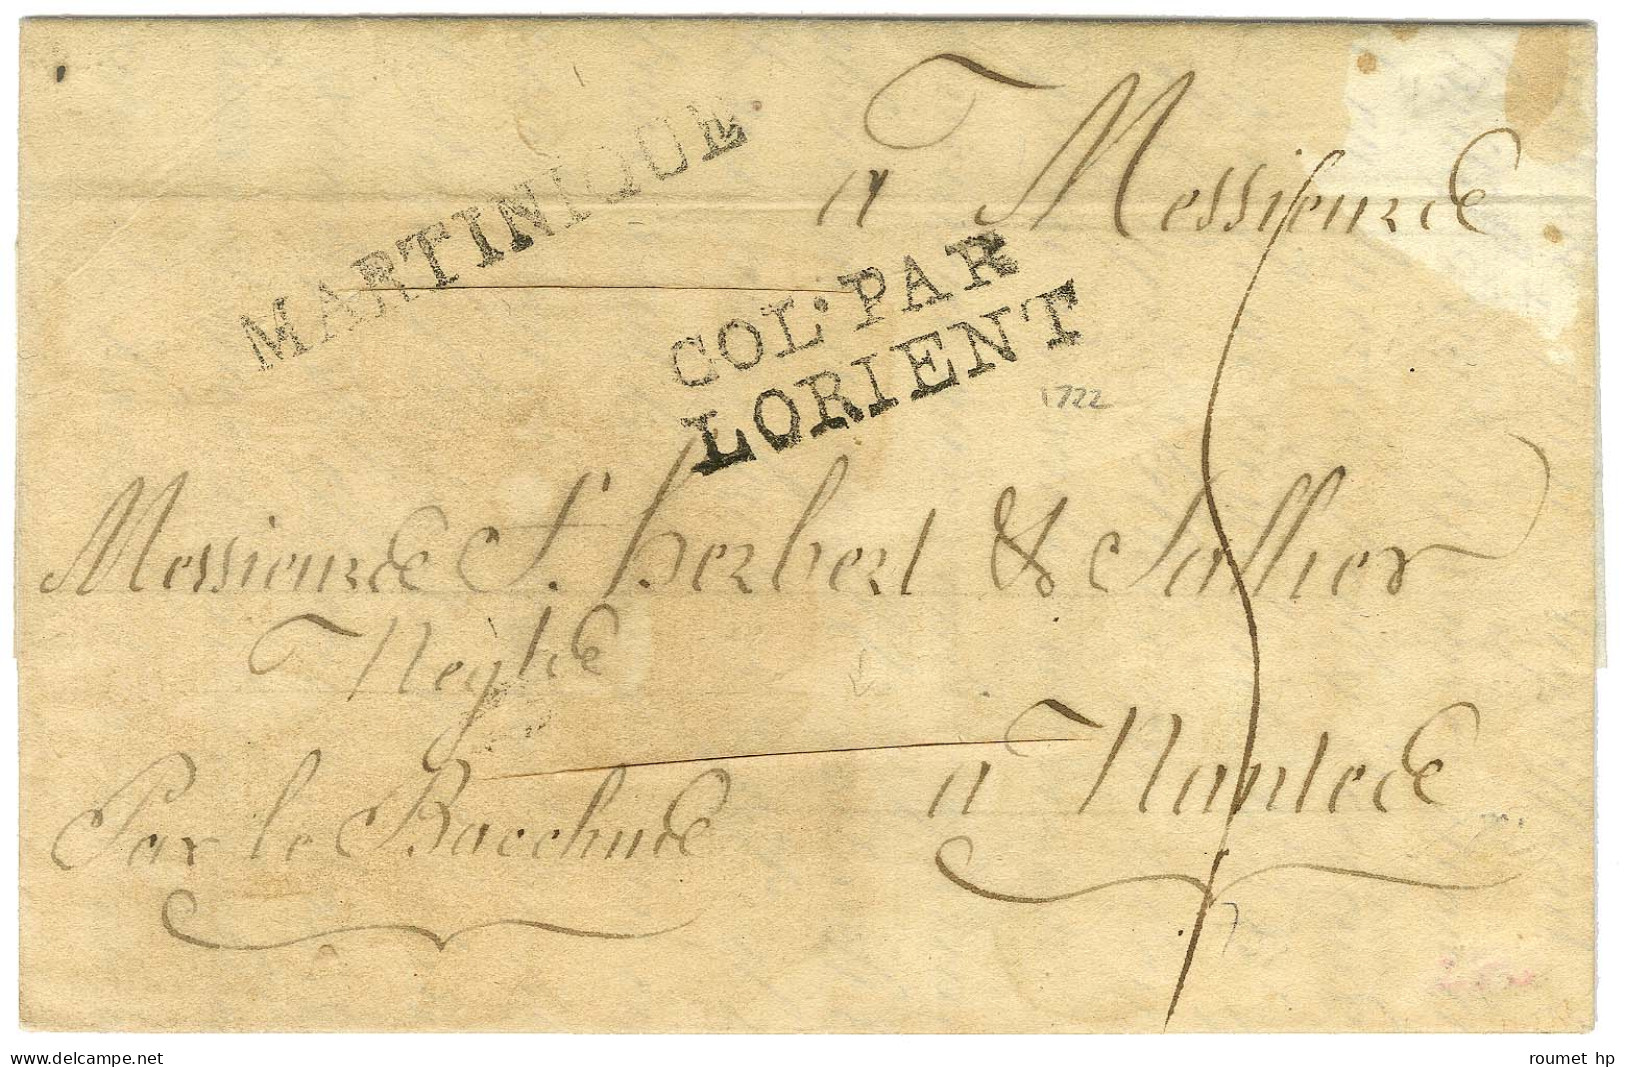 MARTINIQUE.
à Messieurs
COL. PAR
LORIENT
1722
Messieurs S. herbert & Sallier
Neg.ts
Par le Bacchus
à Nantes
7
www.delcampe.net
roumet hp